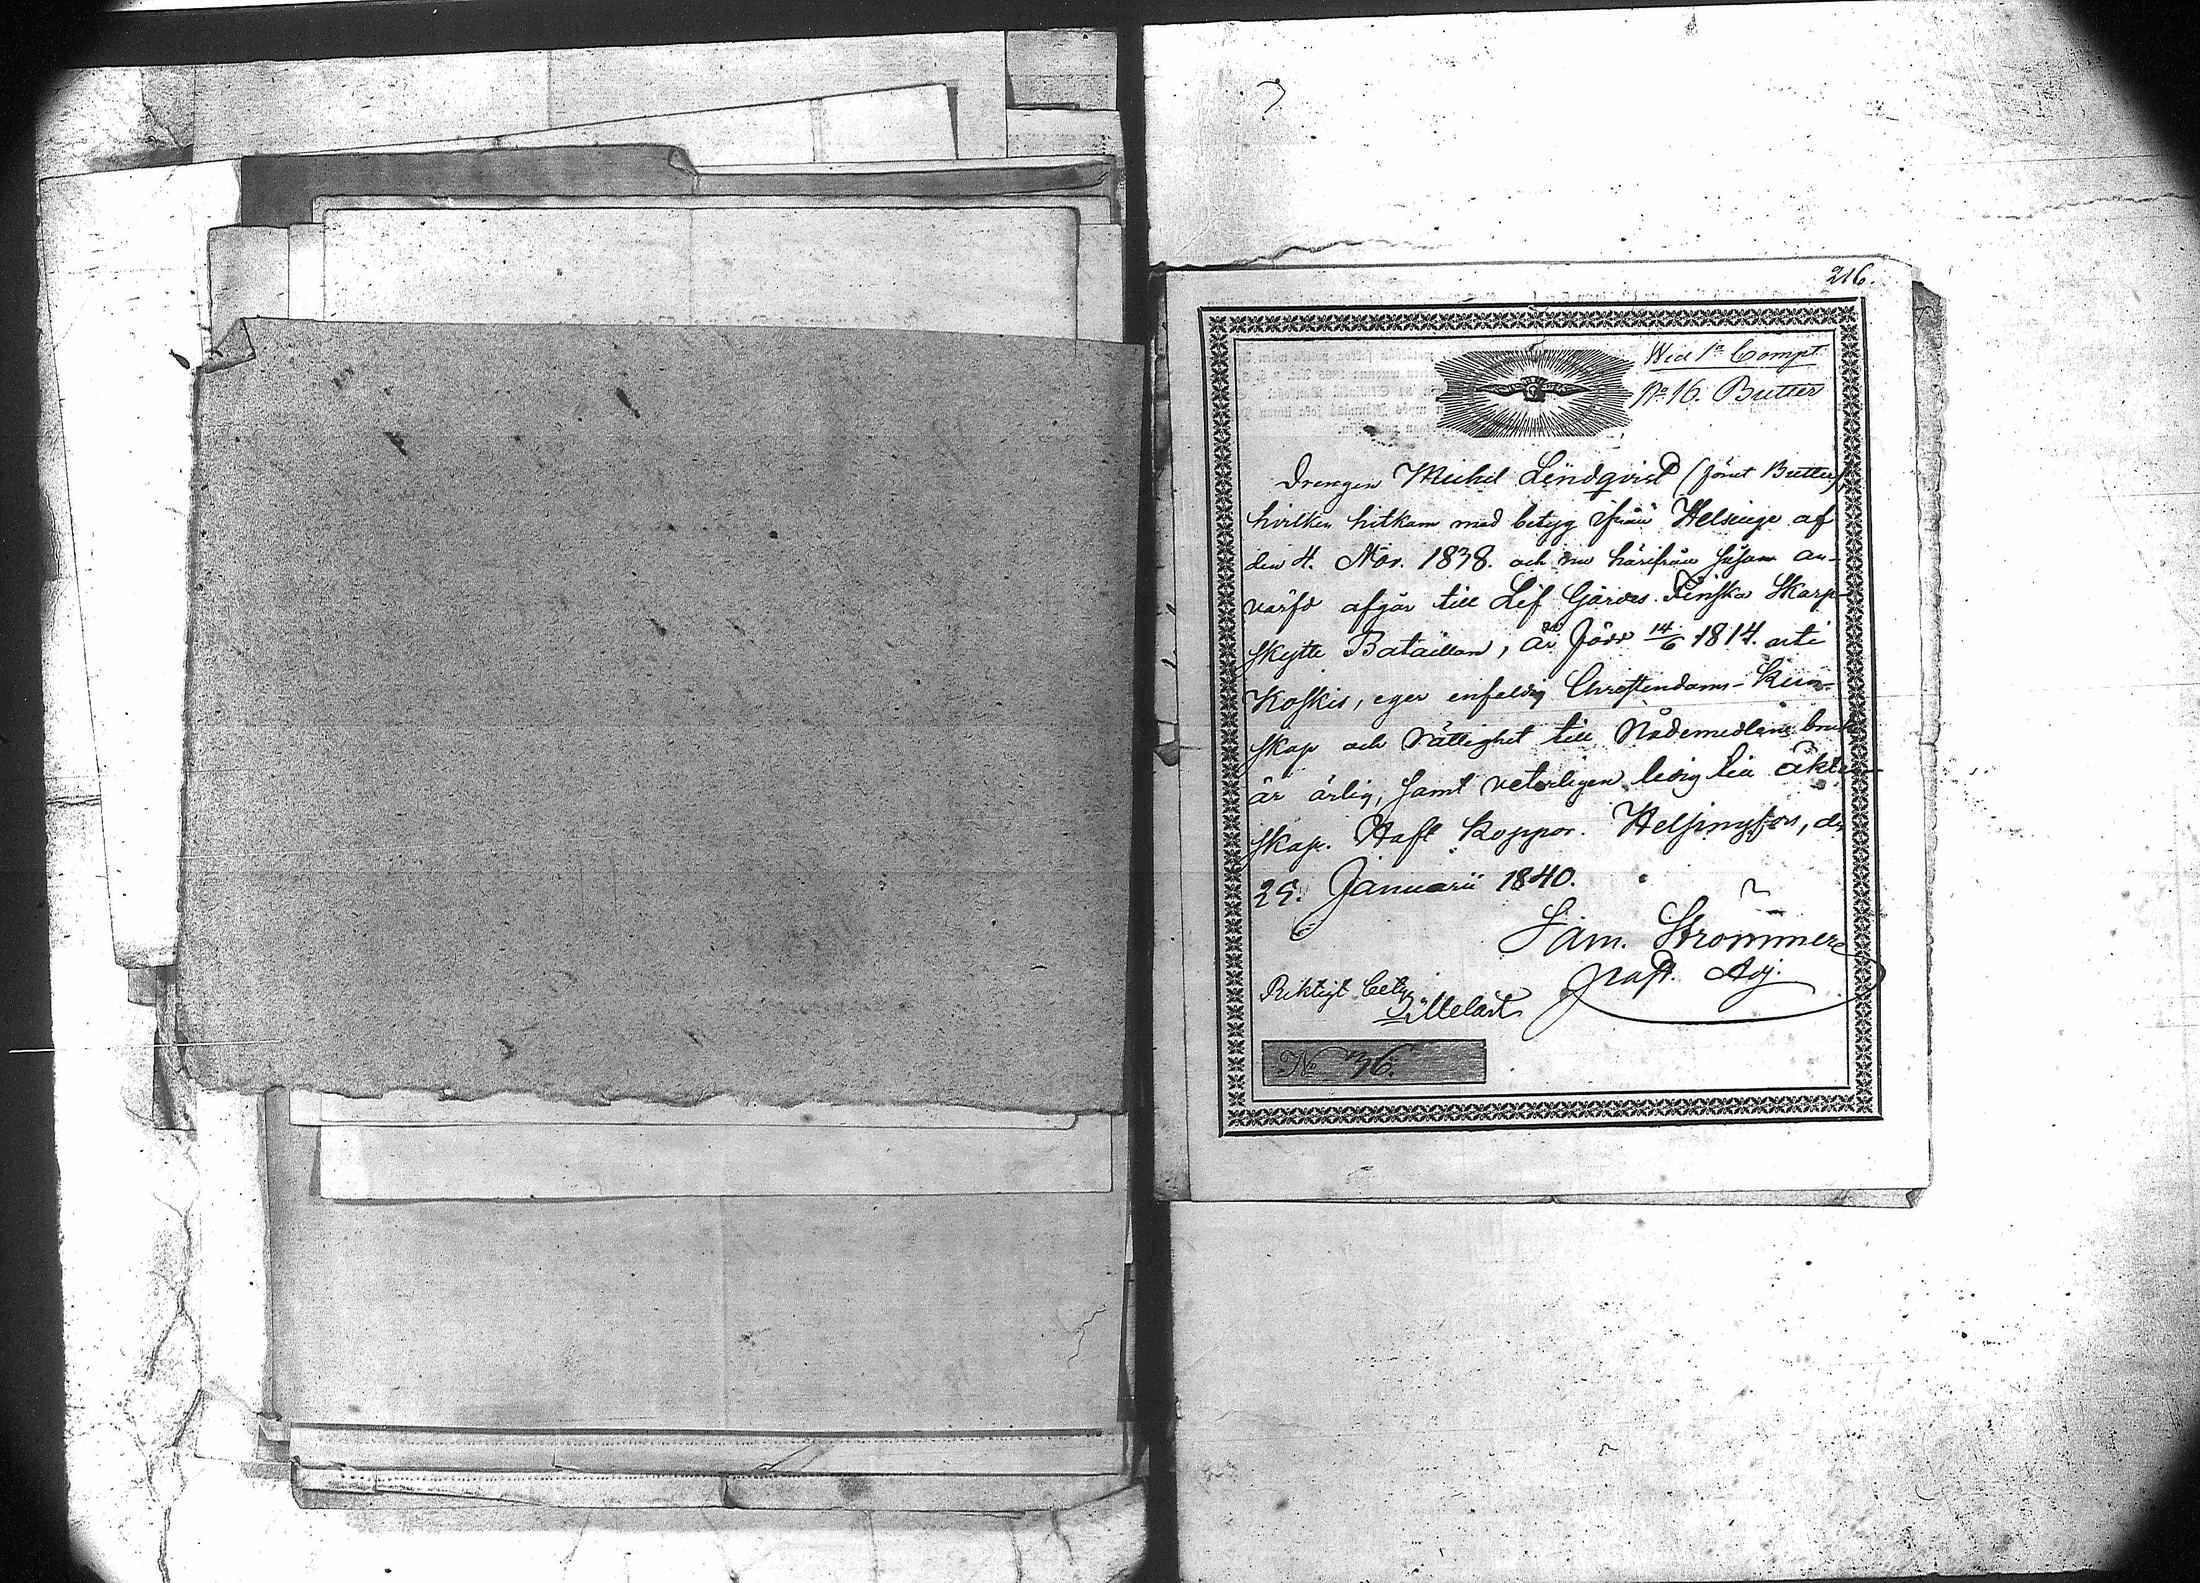 216.
Wid 1a Compt
No 16. Butter
Drengen Michel Lindqvist (förut Butter),
hvilken hitkom med betyg ifrån Helsinge af
den 4. Nov. 1838. och nu härifrån såsom an-
värfd afgår till Lif Gardes Finska Skarp-
skytte Bataillon, är född 14/6 1814. uti
Koskis, eger enfaldig Christendoms-Kun-
skap och rättighet till Nådemedlens bruk
är ärlig, samt veterligen ledig till äkten-
skap. Haft koppor. Helsingfors, d.
25. Januarii 1840.
Sam. Strömmer
past. Adj.
Riktigt betyg
Melart
No 36.